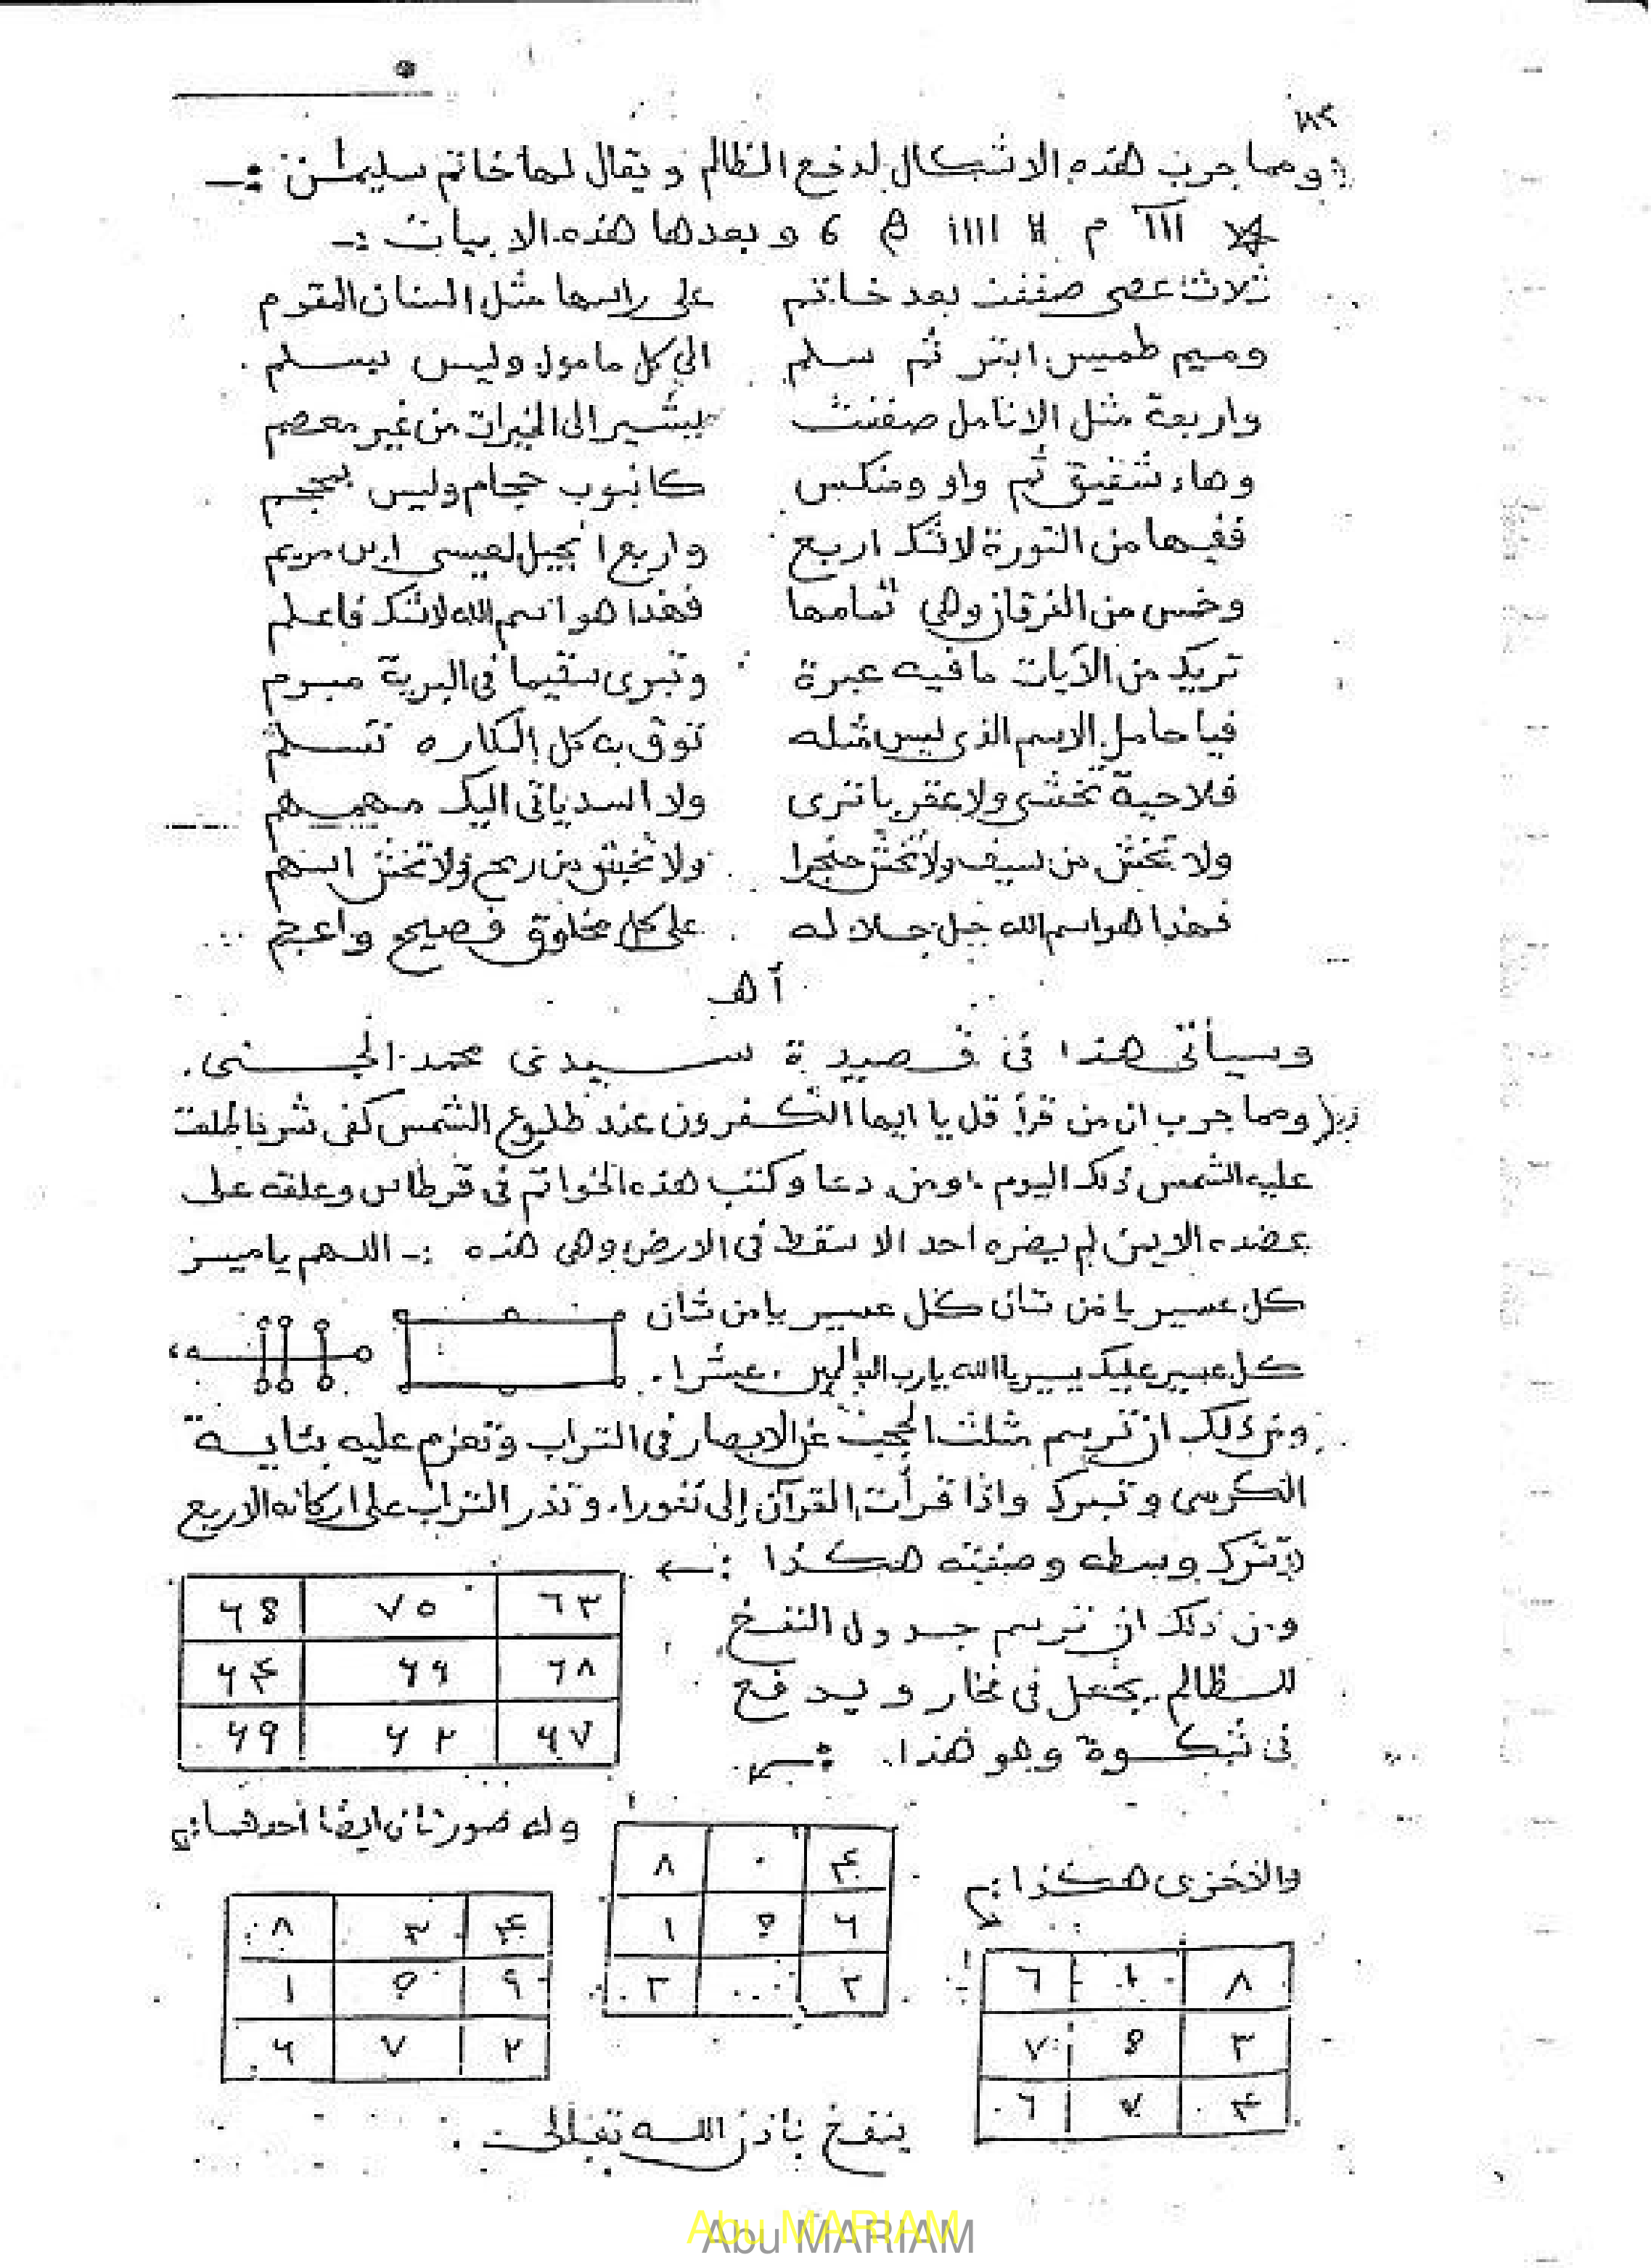 ومما جرب هذه الاشكال لدفع الظالم ويقال لها خاتم سليمان :ـ
وبعدها هذه الابيات :ـ
ثلاث عصي صففت بعد خاتم على راسها مثل السنان المقوم
وميم طميس ابتر ثم سلم الي كل مامول وليس بسلم
واربعة مثل الانامل صففت يشير الى الخيرات من غير معصم
وهاء شقيق ثم واو ومنكس كانبوب حجام وليس بمحجم
ففيها من التورة لاشك اربع واربع انجيل لعيسى ابن مريم
وخمس من الفرقان وهي تمامها فهذا هو اسم الله لاشك فاعلم
تريك من الآيات ما فيه عبرة وتبرى سقيما في البرية مبرم
فيا حامل الاسم الذي ليس مثله توق به كل المكاره تسلم
فلا حية تخشى ولا عقربا ترى ولا اسد ياتي اليك مهمهم
ولا تخش من سيف ولا تخش خنجرا ولا تخش من رمح ولا تخش اسهم
فهذا هو اسم الله جل جلاله على كل مخلوق فصيح واعجم
أ هـ
وسيأتي هذا في قصيدة سيدى محمد الجسنى .
ومما جرب ان من قرأ قل يا ايها الكفرون عند طلوع الشمس كفى شر ما طلعت
عليه الشمس ذلك اليوم ، ومن دعا وكتب هذه الخواتم في قرطاس وعلقه على
عضده الايمن لم يضره احد الا سقط في الارض وهي هذه :ـ اللهم يا ميسر
كل عسير يا من شان كل عسير يا من شان
كل عسير عليك يسير يا الله يا رب العالمين . عشرا .
ومن ذلك ان ترسم مثلث الحجب عن الابصار في التراب وتعزم عليه بئاية
الكرسي وتبرك واذا قرأت القرآن إلى نفورا، وتذر التراب على اركانه الاربع
وتترك وسطه وصفته هكذا :
٦٣ ٧٥ ٦٥
٦٨ ٦٦ ٦٤
٦٧ ٦٢ ٦٩
ومن ذلك ان ترسم جدول النفخ
للظالم يجعل في فخار ويدفع
في شكوة وهو هذا . :
٤ ٠ ٨
٦ ٥ ١
٢ ٠٠ ٢
وله صورتان ايضا أحدهما :
٤ ٣ ٨
٩ ٥ ١
٢ ٧ ٦
والأخرى هكذا :
٨ ١ ٦
٣ ٥ ٧
٤ ٧ ٦
ينفخ باذن الله تعالى .
Abu MARIAM